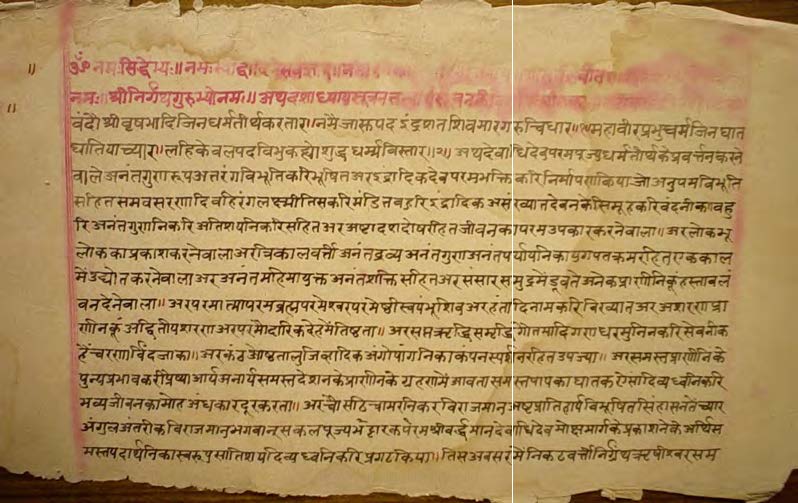 ॐ नमः सिद्धेभ्यः॥ नमः
नमः॥ श्रीनिर्ग्रंथगुरुभ्योनमः॥ अथ
वंदौ श्रीवृषभादिजिनधर्मतीर्थकरतार॥ नमै जास पद इंद्रशत शिवमारग रुचिधार॥ महावीर प्रभु चर्मजिन घात
घातियाच्यार॥ लहि केवलपद विभु कह्यो शुद्ध धर्म्मविस्तार॥२॥ अथ देवाधिदेव परमपूज्य धर्मतीर्थके प्रवर्त्तन करने
वाले अनंतगुणरूप अतरंगविभूतिकरि भूषित अर इंद्रादिकदेव परमभक्तिकरि निर्मापण किया जो अनुपम विभूति
सहित समवसरणादि वहिरंगलक्ष्मी तिसकरि मंडित वहुरि इंद्रादिक असंख्यात देवनके समूहकरि वंदनीक वहु
रि अनंतगुणनिकरि अतिशयनिकरि सहित अर अष्टादशदोषरहित जीवनका परम उपकार करनेवाला॥ अर लोक
लोकका प्रकाश करनेवाला अर त्रिकालवर्त्ती अनंतद्रव्य अनंतगुण अनंतपर्यायनिका युगपत क्रमरहित एककाल
में उद्योत करनेवाला अर अनंतमहिमायुक्त अनंतशक्ति सहित अर संसारसमुद्रमें डूवते अनेक प्राणीनिकूं हस्तावलं
वन देनेवाला॥ अर परमात्मा परमब्रह्म परमेश्वर परमेष्ठी स्वयंभू शिव अरहंतादि नामकरि विख्यात अर अशरण प्रा
णीनिकूं अद्वितीय शरण अर परमौदारिक देहमें तिष्ठता॥ अर सप्तऋद्धि समृद्धि गौतमादि गणधर मुनिनकरि सेवनीक
है चरणार्विंद जाका॥ अर कंठ ओष्ठ तालु जिव्हादिक अंगोपांगनिका कंपन स्पर्शनरहित उपज्या॥ अर समस्त प्राणीनिके
पुन्यप्रभावकरि आर्य अनार्य समस्तदेशनके प्राणीनिके ग्रहणमें आवता समस्त पापका घातक ऐसा दिव्यध्वनिकरि
भव्यजीवनका मोह अंधकार दूर करता॥ अर चौसठि चामरनिकर विराजमान अष्टप्रातिहार्य विभूषित सिंहासनतें च्यार
अंगुल अंतरीक विराजमान भगवान सकलपूज्य भट्टारक परम श्रीवर्द्धमान देवाधिदेव मोक्षमार्गके प्रकाशनेके अर्थि स
मस्त पदार्थनिका स्वरूप सातिशय दिव्यध्वनिकरि प्रगट किया॥ तिस अवसरमें निकटवर्त्ती निर्ग्रंथ ऋषीश्वर सम